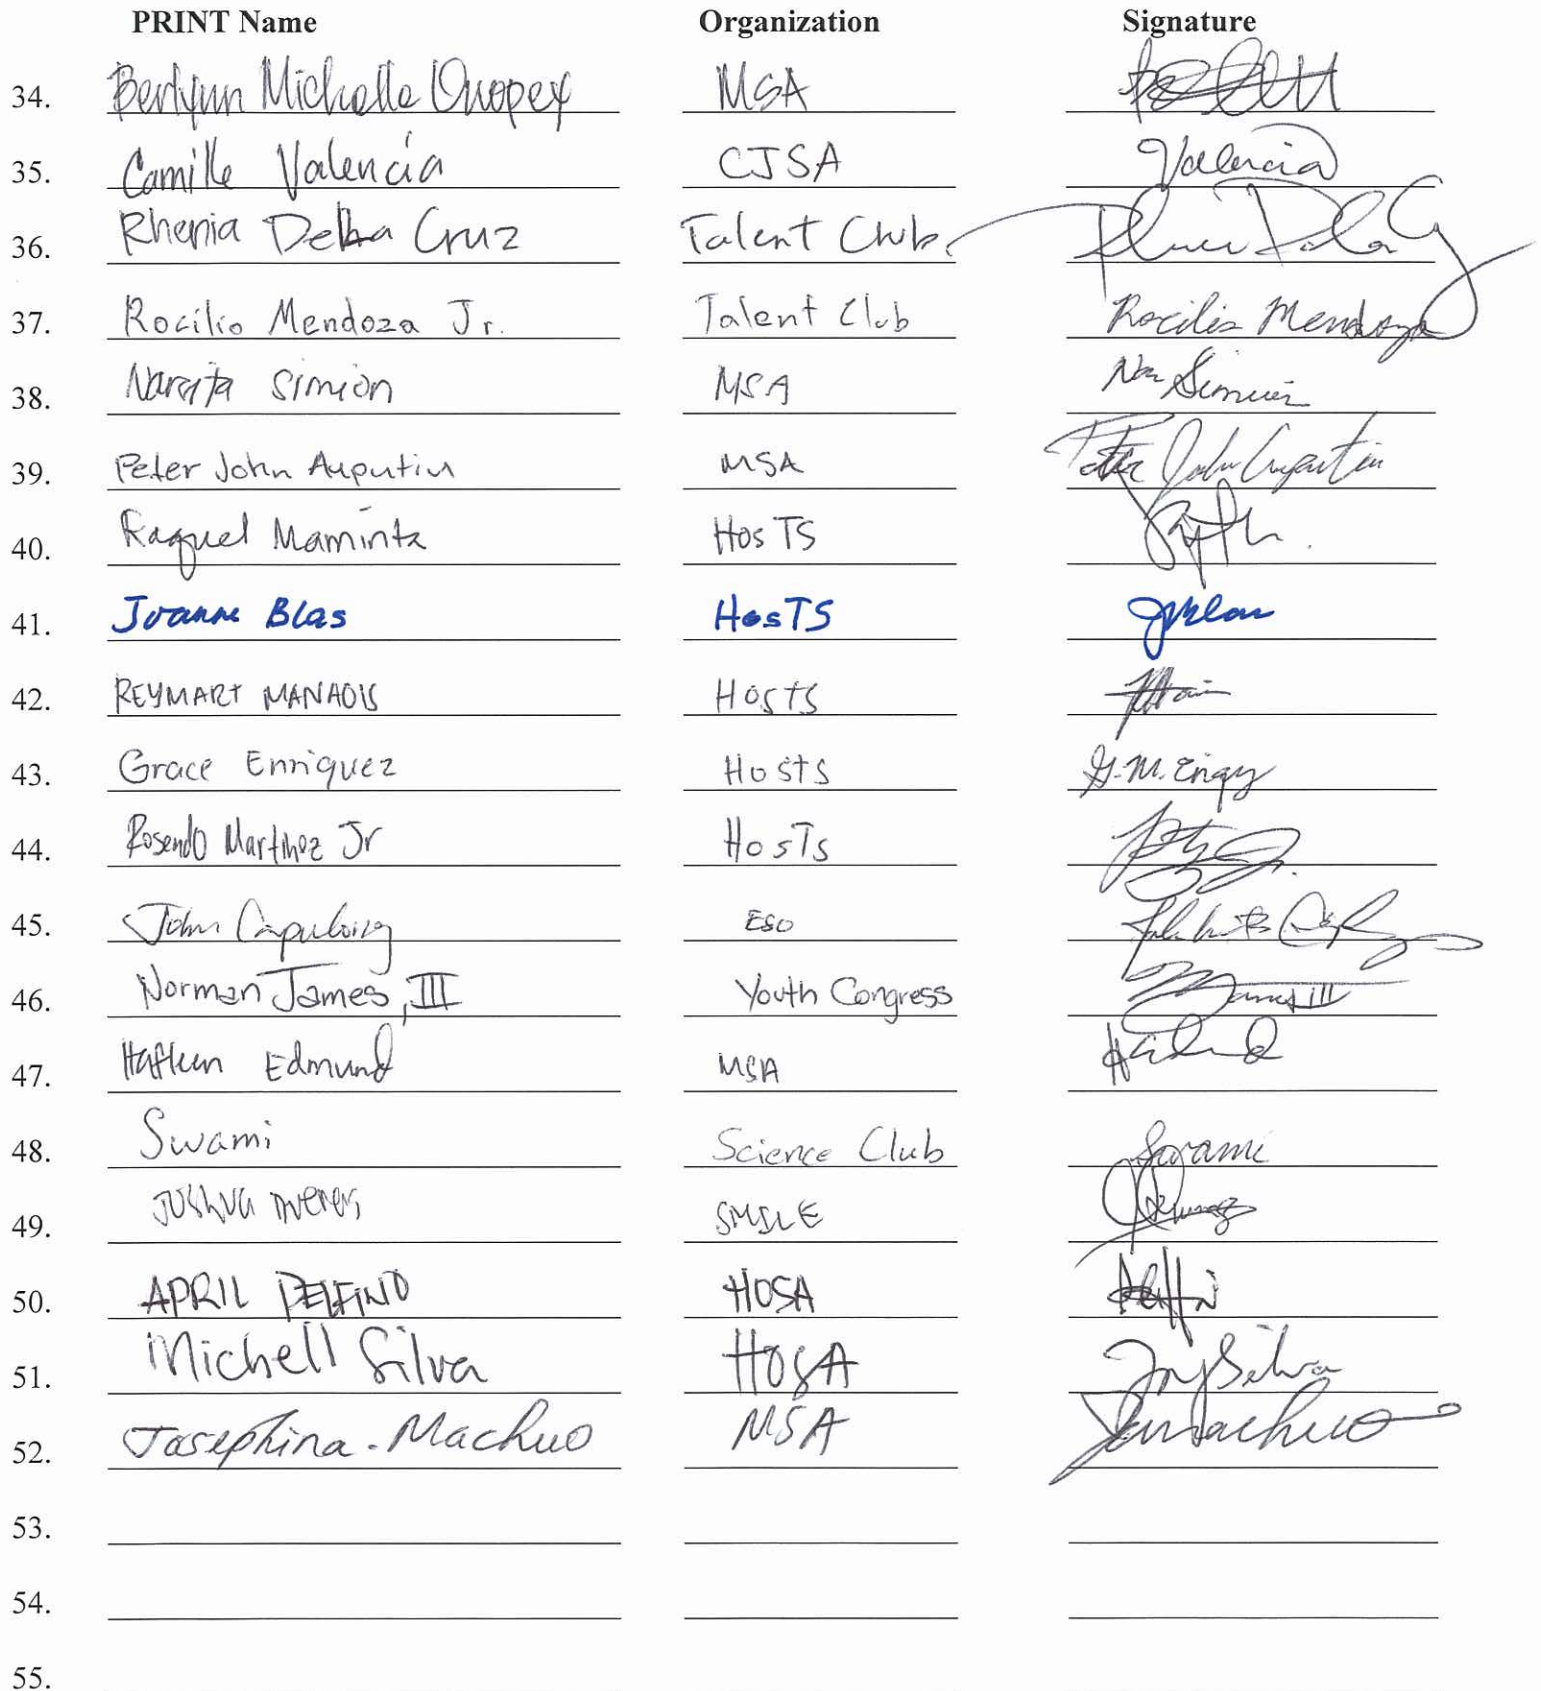 PRINT Name Organization Signature
34. Michelle MSA
35. Camille Valencia CJSA Valencia
36. Rhenia Dela Cruz Talent Club
37. Rocilio Mendoza Jr. Talent Club Rocilio Mendoza
38. Narsita Simion MSA Simion
39. Peter John Auputin MSA Peter John Auputin
40. Raquel Maminta HosTS
41. Joanne Blas HosTS
42. REYMART MANAOIS HOSTS
43. Grace Enriquez HosTS G. M.
44. Rosendo Martinez Jr HosTs
45. John Capulong ESO
46. Norman James, III Youth Congress James III
47. Edmund MSA
48. Swami Science Club Swami
49. JOSHUA SMILE
50. APRIL DELFINO HOSA
51. Michell Silva HOSA Silva
52. Josephina. Machuo MSA Machuo
53.
54.
55.